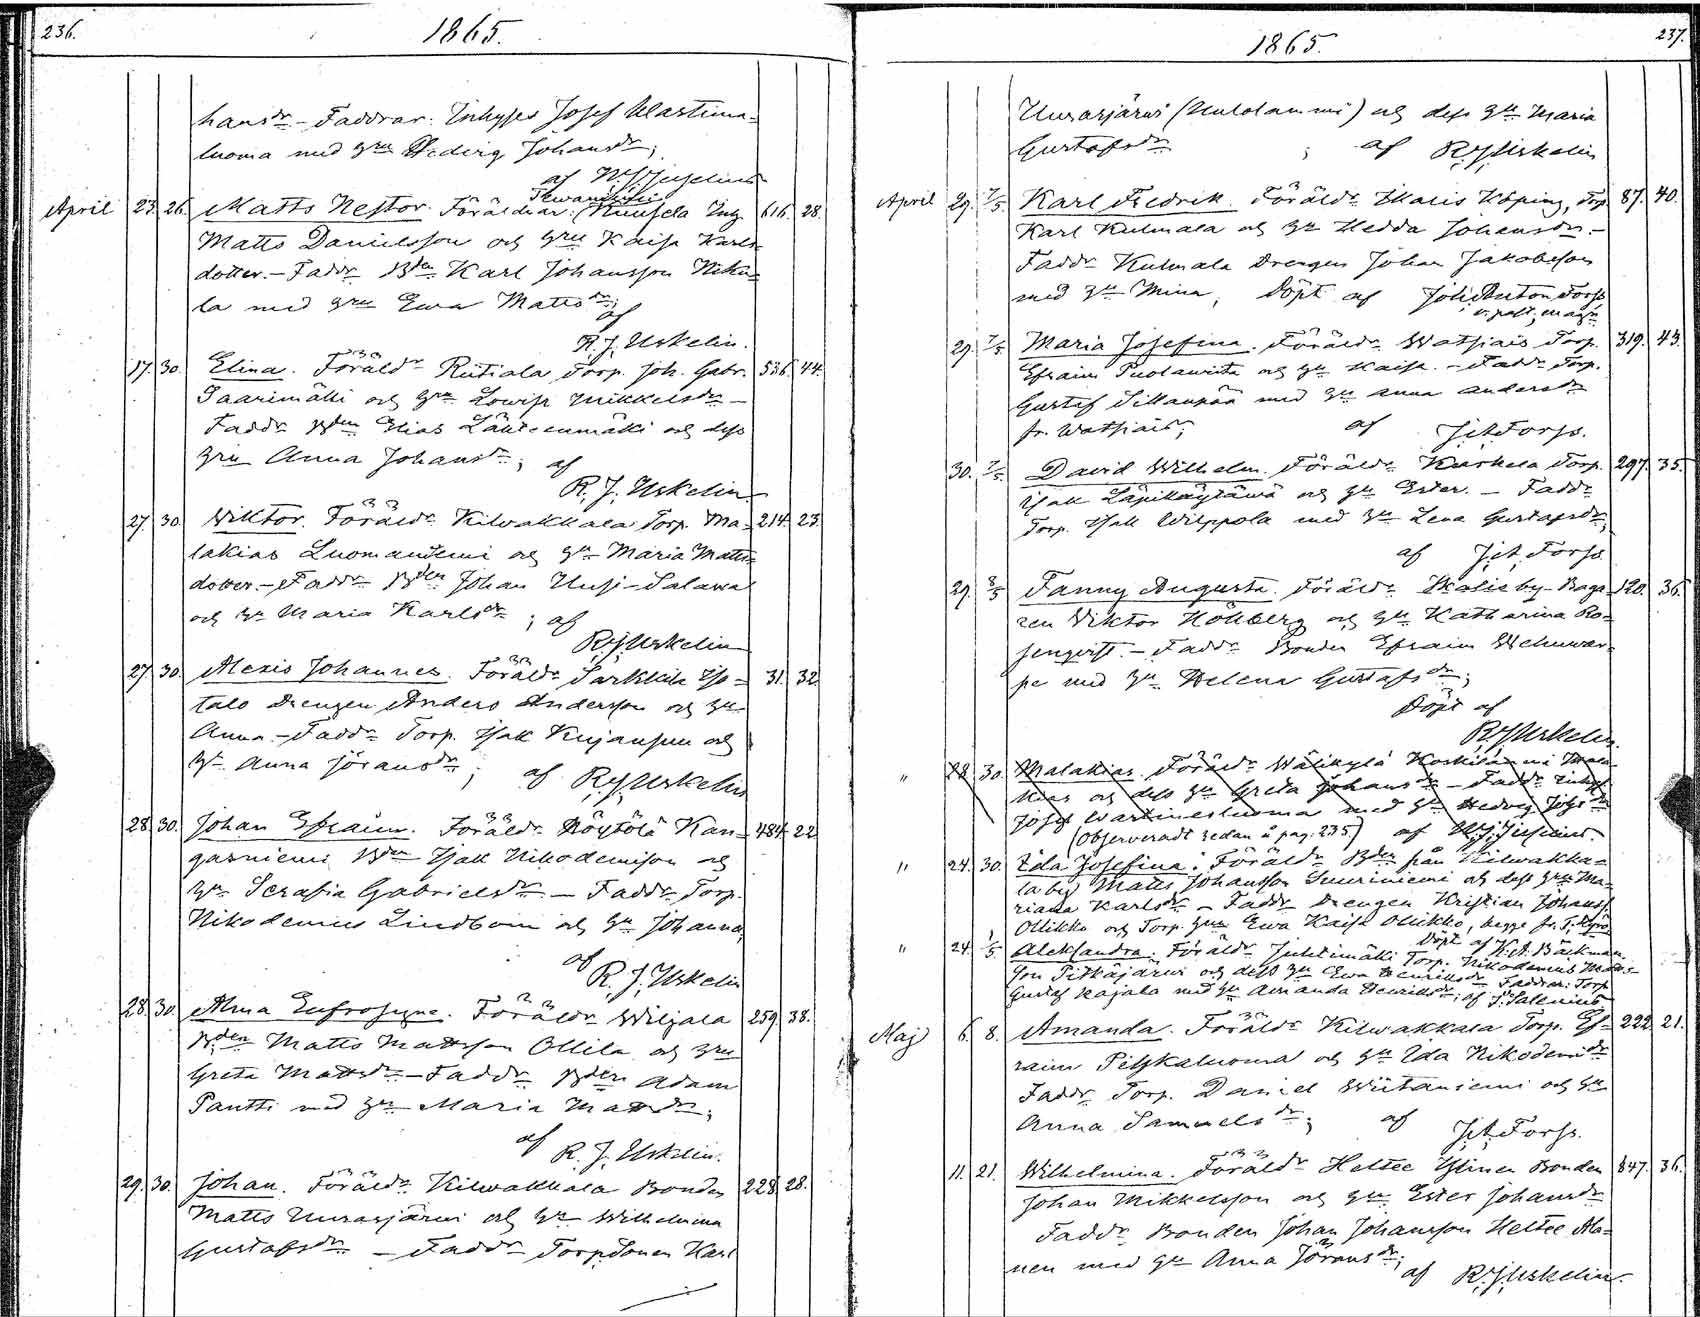 236.
1865.
hansdr - Faddrar: Inhyses Josef Wastima-
luoma med hru Hedvig Johansdr;
af
April 23. 26. Matts Nestor. Föräldrar: Ing. 616. 28.
Matts Danielsson och hru Kaisa Karls-
dotter. - Faddr Bden Karl Johansson Niku-
la med hru Ewa Mattsdr;
af
R. J. Uskelin.
17. 30. Elina. Föräldr Riitiala Torp. Joh. Gabr. 536. 44.
Saarimäki och hru Lowisa Mikkelsdr -
Faddr Bden Elias Lähteenmäki och dess
hru Anna Johansdr; af
R. J. Uskelin
27. 30. Wiktor. Föräldr Kilwakkala Torp. Ma- 214. 23.
lakias Luomaniemi och hu Maria Matts-
dotter. - Faddr Bden Johan Uusi-Salawa
och hu Maria Karlsdr; af
R. J. Uskelin
27. 30. Alexis Johannes. Föräldr Särkkilä Iso- 31. 32.
talo Drengen Anders Andersson och hu
Anna. - Faddr Torp. Isak Kujanpuu och
hu Anna Jöransdr; af R. J. Uskelin
28. 30. Johan Efraim. Föräldr Röytölä Kan- 484. 22
gasniemi Bden Isak Nikodemisson och
hu Serafia Gabrielsdr - Faddr Torp.
Nikodemus Lindbom och hu Johanna,
af
R. J. Uskelin
28. 30. Alma Eufrosyne. Föräldr Wiljala 259. 38.
Bden Matts Mattsson Ollila och hru
Greta Mattsdr - Faddr Bden Adam
Pantti med hu Maria Mattsdr;
af
R. J. Uskelin.
29. 30. Johan. Föräldr Kilwakkala Bonden 228. 28.
Matts Uurasjärwi och hu Wilhelmina
Gustafsdr - Faddr Torpsonen Karl
1865.
237.
Uurasjärwi (Uutolammi) och dess hu Maria
Gustafsdr; af R. J. Uskelin
April 29. 7/5. Karl Fredrik. Föräldr Ikalis Köping, Torp. 87. 40.
Karl Kulmala och hu Hedda Johansdr. -
Faddr Kulmala Drengen Johan Jakobsson
med hu Mina, Döpt af Joh. Anton Forss,
v. past., mag.
29. 7/5. Maria Josefina. Föräldr Watsiais Torp. 319. 43.
Efraim Puolawita och hu Kaisa. - Faddr Torp.
Gustaf Sillanpää med hu Anna Andersdr
fr. Watsiais; af J. A. Forss.
30. 7/5. David Wilhelm. Föräldr Kuskela Torp. 297. 35.
Isak Läpikäytäwä och hu Ester. - Faddr
Torp. Isak Wilppola med hu Lena Gustafsdr;
af J. A. Forss
29. 8/5 Fanny Augusta. Föräldr Ikalis by Baga- 120. 36.
ren Wiktor Högberg och hu Katharina Ro-
senqvist. - Faddr Bonden Efraim Wehuwar-
pe med hu Helena Gustafsdr;
Döpt af
R. J. Uskelin.
" 28. 30. Malakias. Föräldr Wälikylä Koskilammi Mala-
kias och dess hu Greta Johansdr - Faddr Inhys.
Josef Wastinesluoma med hu Hedvig Johsdr
(Observeradt redan å pag. 235.) af
" 24. 30. Ida Josefina. Föräldr Bden från Kilwakka-
la by Matts Johansson Suuriniemi och dess hru Ma-
riana Karlsdr - Faddr Drengen Kristian Johanss.
Ollikko och Torp. hru Ewa Kaisa Ollikko, begge fr. T. Kyrö
Döpt af K. A. Bäckman.
" 24. 1/5. Aleksandra. Föräldr Juhtimäki Torp. Nikodemus Matts-
son Pitkäjärwi och dess hu Ewa Henriksdr Faddrar: Torp.
Gustaf Kajala med hu Amanda Henriksdr; af J. Salenius
Maj 6. 8. Amanda. Föräldr Kilwakkala Torp. Ef- 222. 21.
raim Pitskaluoma och hu Ida Nikodemidr
Faddr Torp. Daniel Wiitaniemi och hu
Anna Samuelsdr; af
J. A. Forss.
11. 21. Wilhelmina. Föräldr Heltee Ylinen Bonden 847. 36.
Johan Mikkelsson och hru Ester Johansdr
Faddr Bonden Johan Johansson Heltee Ala-
nen med hu Anna Jöransdr;
af R. J. Uskelin.